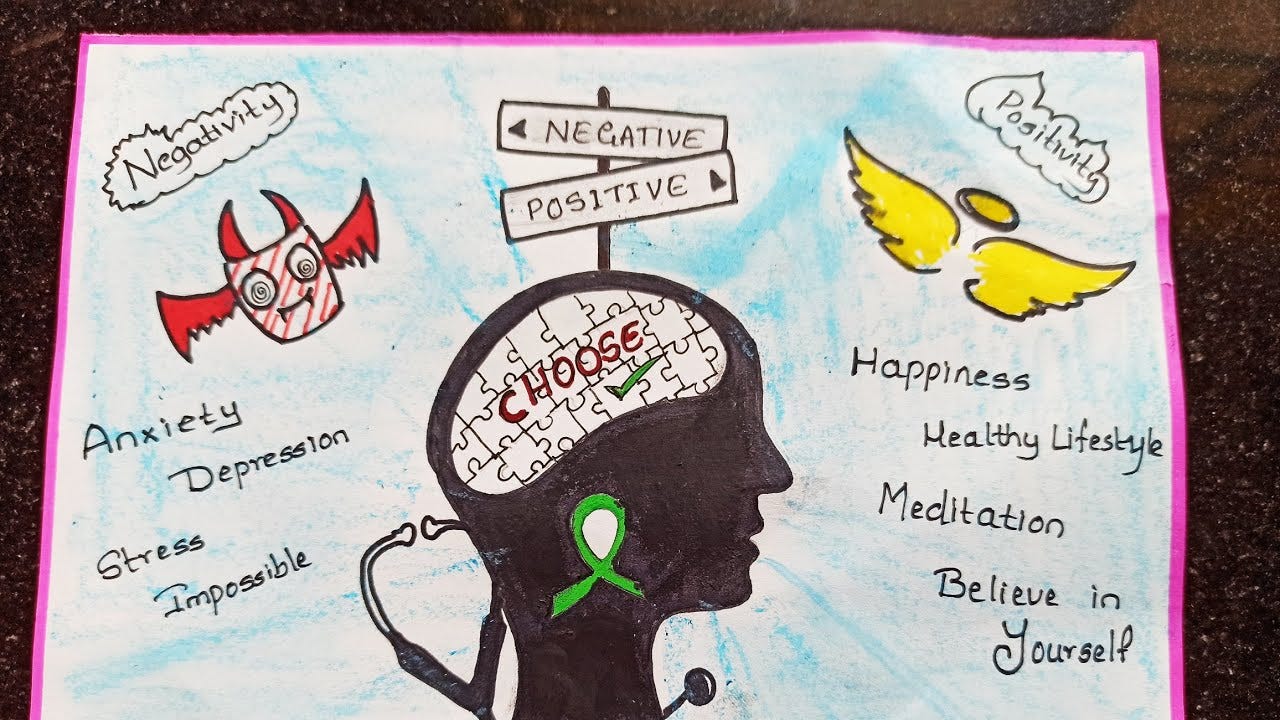 Negativity
NEGATIVE
POSITIVE
Positivity
CHOOSE
Anxiety
Depression
Stress
Impossible
Happiness
Healthy Lifestyle
Meditation
Believe in
Yourself